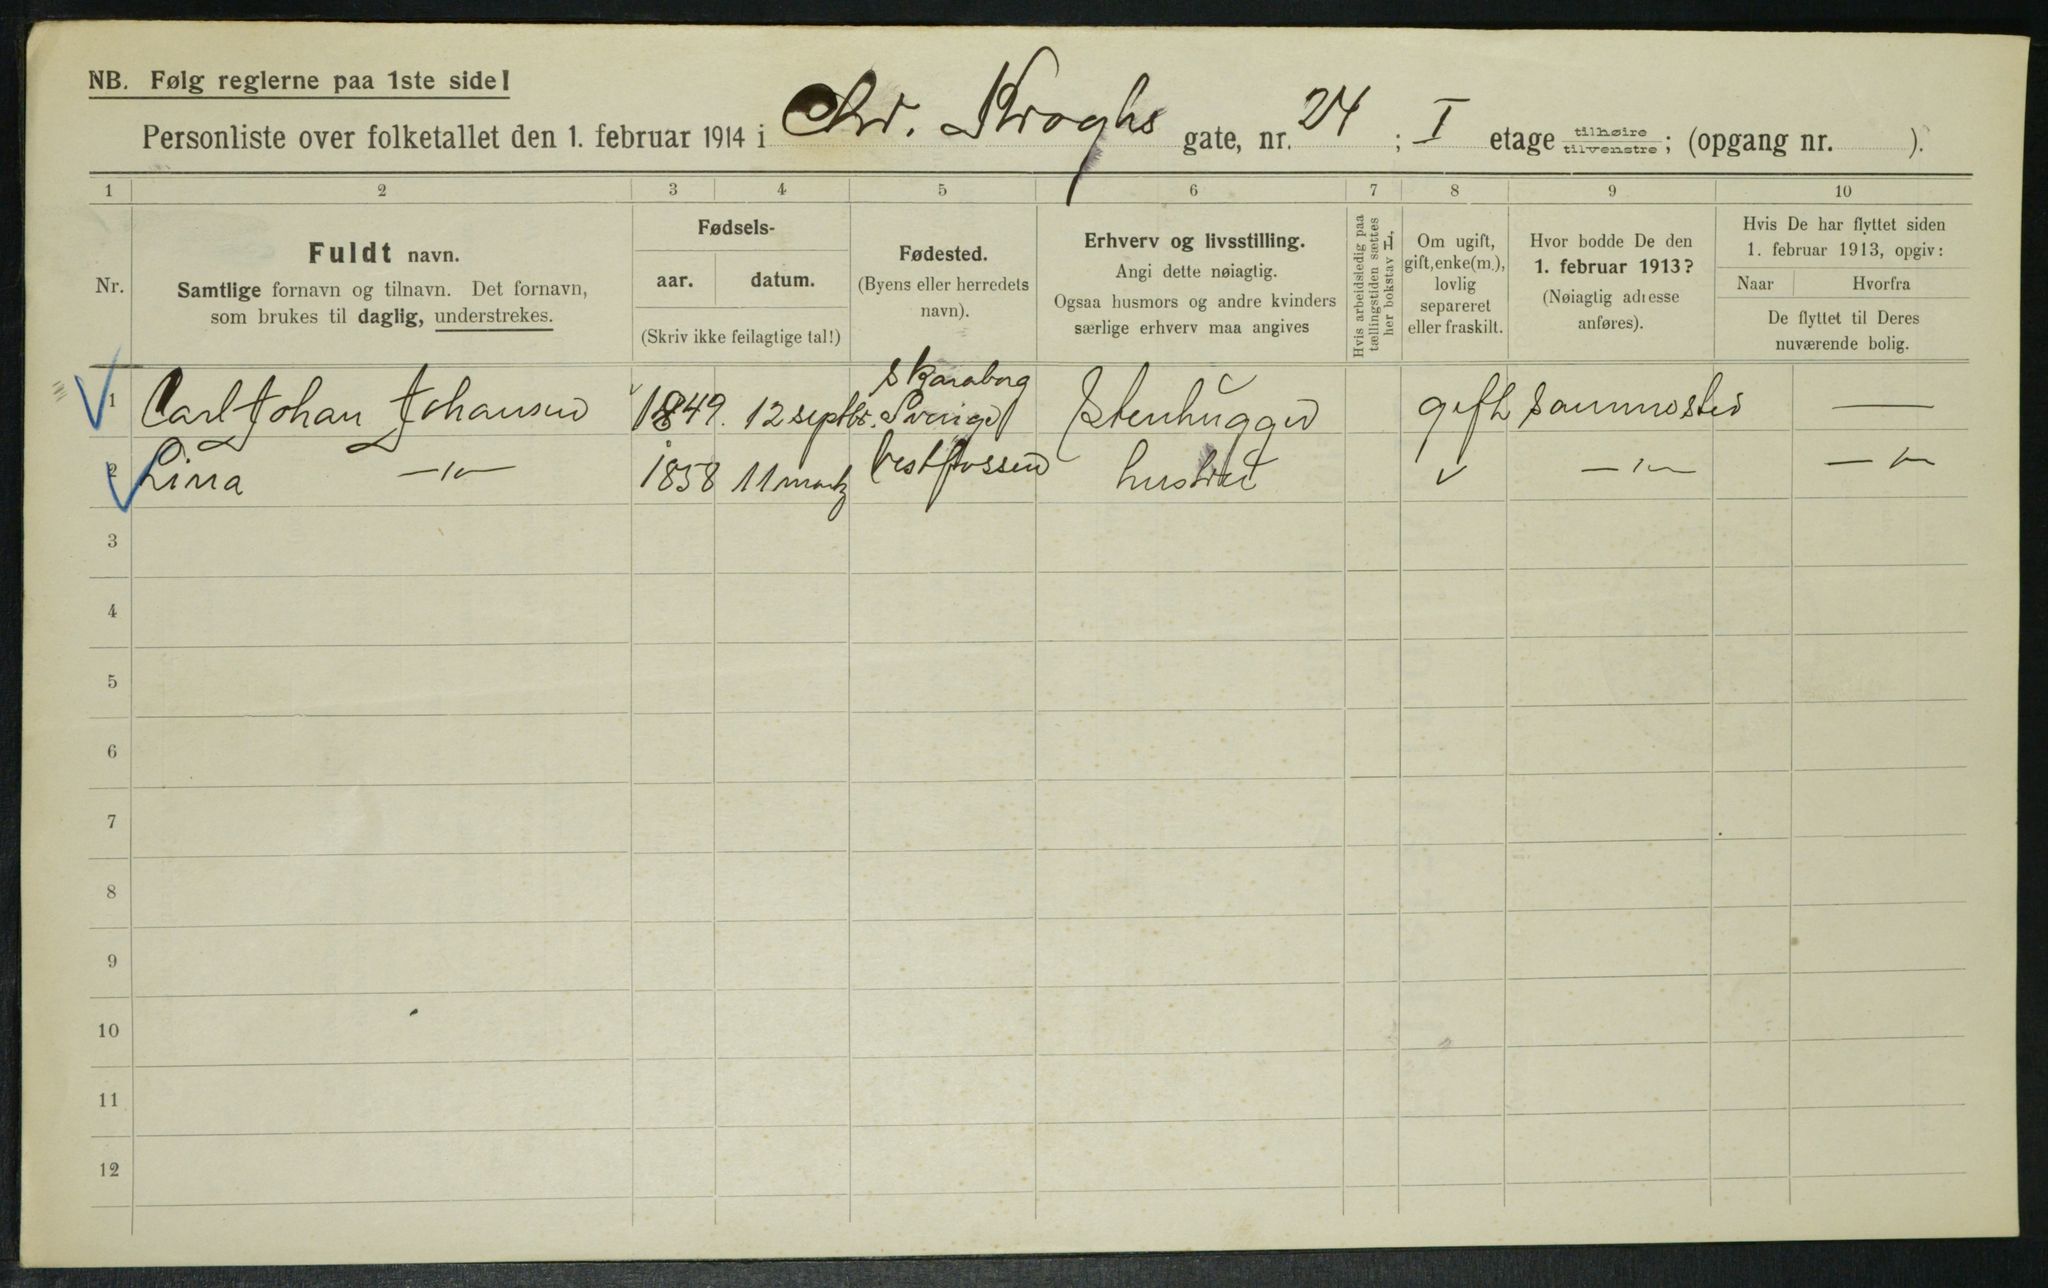 NB. Følg reglerne paa 1ste side!
Personliste over folketallet den 1. februar 1914 i Chr. Kroghs gate, nr. 24 ; I etage tilhøire tilvenstre ; (opgang nr. ).
1 2 3 4 5 6 7 8 9 10
Nr.
Fuldt navn.
Samtlige fornavn og tilnavn. Det fornavn,
som brukes til daglig, understrekes.
Fødsels-
aar. datum.
(Skriv ikke feilagtige tal!)
Fødested.
(Byens eller herredets
navn).
Erhverv og livsstilling.
Angi dette nøiagtig.
Ogsaa husmors og andre kvinders
særlige erhverv maa angives
Hvis arbeidsledig paa
tællingstiden sættes
her bokstav L,
Om ugift,
gift, enke(m.),
lovlig
separeret
eller fraskilt.
Hvor bodde De den
1. februar 1913?
(Nøiagtig adresse
anføres).
Hvis De har flyttet siden
1. februar 1913, opgiv:
Naar Hvorfra
De flyttet til Deres
nuværende bolig.
1 Carl Johan Johansen 1849. 12 septbr. Skaraborg Sverige Stenhugger gift sammested —
2 Lina —"— 1858 11 marts Vestfossen hustru —"— —"—
3
4
5
6
7
8
9
10
11
12